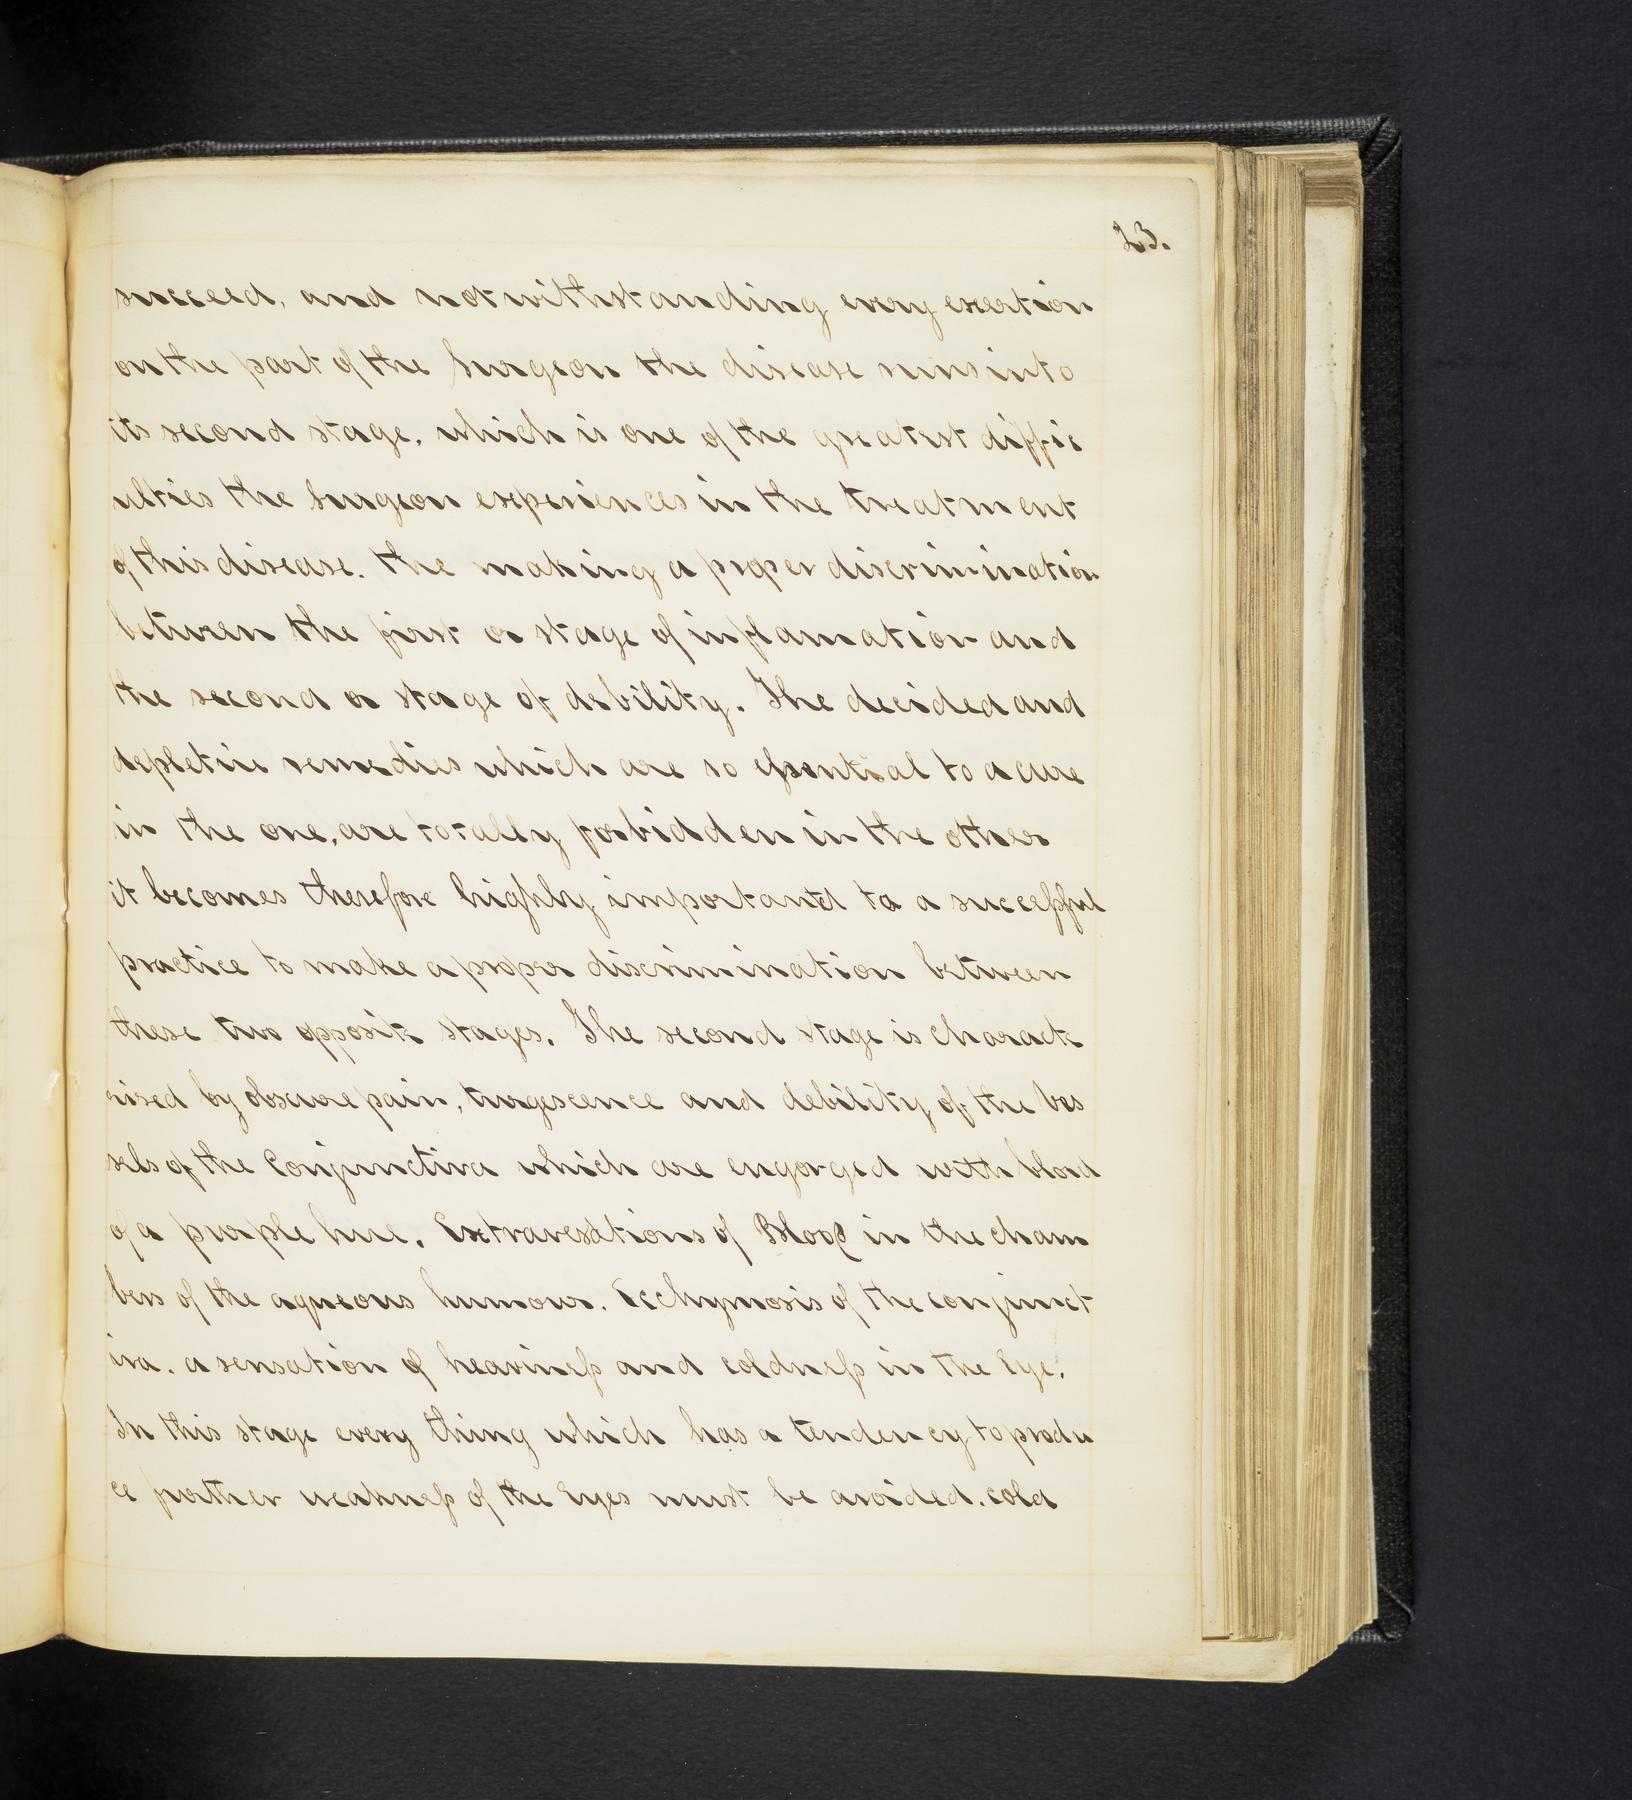 23.
succeed, and notwithstanding every exertion
on the part of the Surgeon the disease runs into
its second stage, which is one of the greatest diffic
ulties the Surgeon experiences in the treatment
of this disease. the making a proper discrimination
between the first or stage of inflamation and
the second or stage of debility. The decided and
depletive remedies which are so essential to a cure
in the one, are totally forbidden in the other
it becomes therefore highly important to a successful
practice to make a proper discrimination between
these two opposite stages. The second stage is characte
rised by obscure pain, turgescence and debility of the ves
sels of the Conjunctiva which are engorged with blood
of a purple hue. Extravesations of Blood in the cham
bers of the aqueous humour. Ecchymosis of the conjunct
iva. a sensation of heaviness and coldness in the Eye.
In this stage every thing which has a tendency to produ
ce further weakness of the Eyes must be avoided. cold